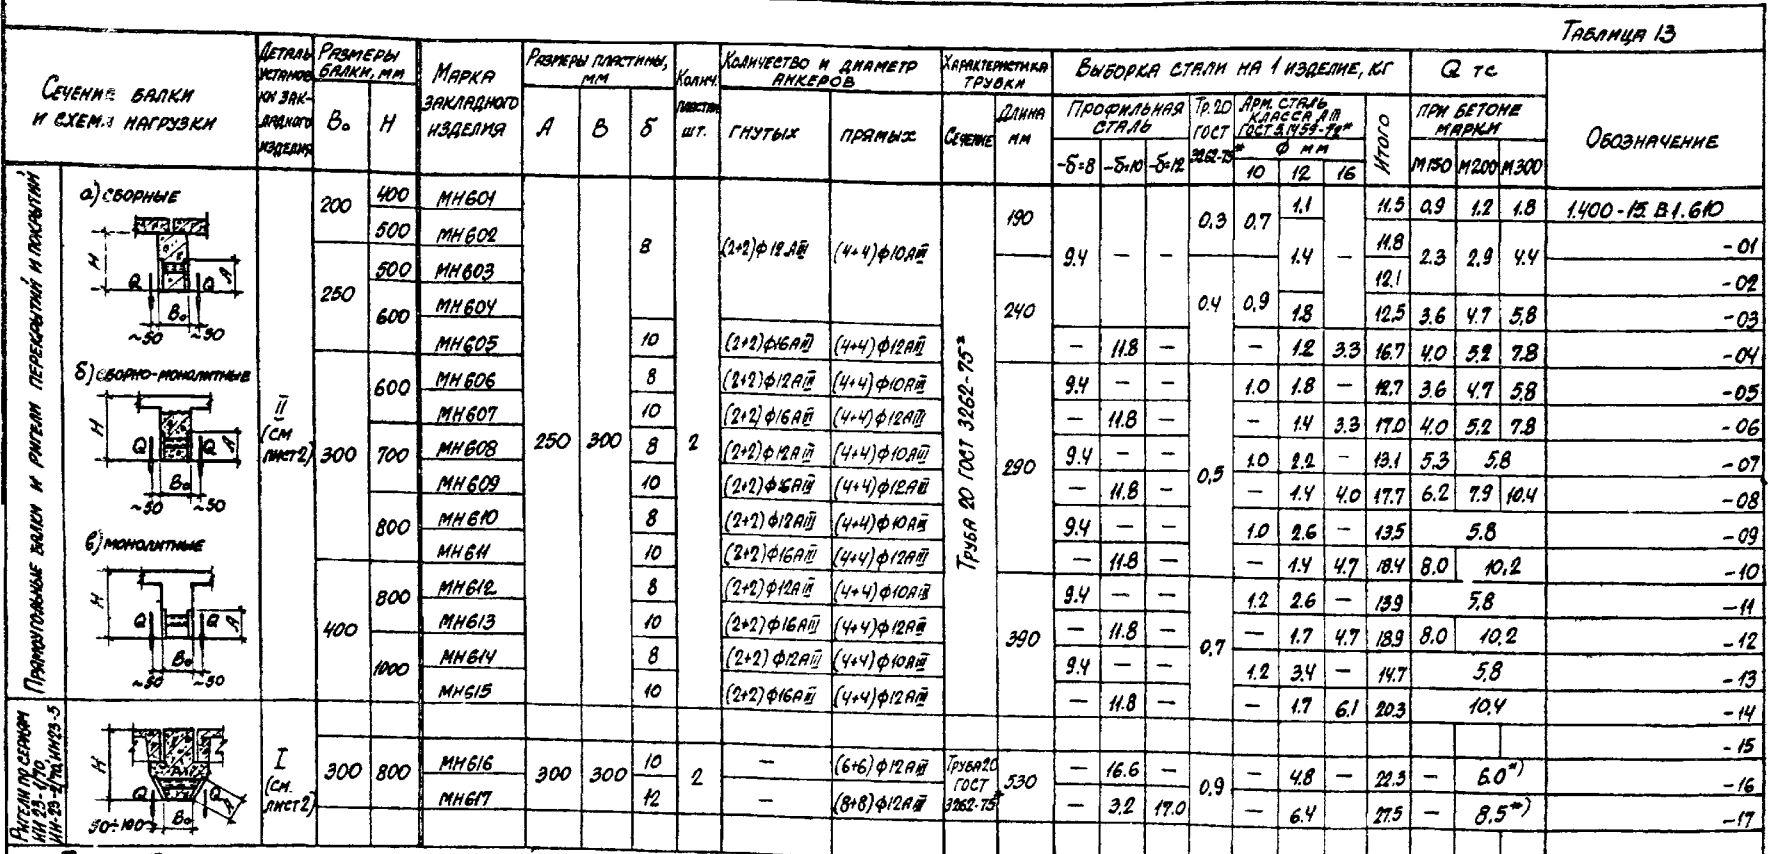 Таблица 13
Сечение балки и схема нагрузки | Деталь установки закладного изделия | Размеры балки, мм | Марка закладного изделия | Размеры пластины, мм | Колич. пластин шт. | Количество и диаметр анкеров | Характеристика трубки | Выборка стали на 1 изделие, кг | Q тс | Обозначение
B₀ | H | A | B | δ | гнутых | прямых | Сечение | Длина мм | Профильная сталь | Тр. 20 ГОСТ 3262-75* | Арм. сталь класса АIII ГОСТ 5.1459-72* Ф мм | Итого | при бетоне марки
-δ=8 | -δ=10 | -δ=12 | 10 | 12 | 16 | М150 | М200 | М300
Прямоугольные балки и ригели перекрытий и покрытий
а) сборные
H Q Q A B₀ ~50 ~50
б) сборно-монолитные
H Q Q A B₀ ~50 ~50
в) монолитные
H Q Q A B₀ ~50 ~50
II (см лист 2)
200 | 400 | МН601 | 250 | 300 | 8 | 2 | (2+2)ф12АIII | (4+4)ф10АIII | Труба 20 ГОСТ 3262-75* | 190 | 9.4 | – | – | 0.3 | 0.7 | 1.1 | – | 11.5 | 0.9 | 1.2 | 1.8 | 1.400-15.В1.610
500 | МН602 | 1.4 | 11.8 | 2.3 | 2.9 | 4.4 | -01
250 | 500 | МН603 | 240 | 0.4 | 0.9 | 12.1 | -02
600 | МН604 | 1.8 | 12.5 | 3.6 | 4.7 | 5.8 | -03
МН605 | 10 | (2+2)ф16АIII | (4+4)ф12АIII | – | 11.8 | – | – | 1.2 | 3.3 | 16.7 | 4.0 | 5.2 | 7.8 | -04
300 | 600 | МН606 | 8 | (2+2)ф12АIII | (4+4)ф10АIII | 290 | 9.4 | – | – | 0,5 | 1.0 | 1.8 | – | 12,7 | 3.6 | 4.7 | 5.8 | -05
МН607 | 10 | (2+2)ф16АIII | (4+4)ф12АIII | – | 11.8 | – | – | 1.4 | 3.3 | 17.0 | 4.0 | 5.2 | 7.8 | -06
700 | МН608 | 8 | (2+2)ф12АIII | (4+4)ф10АIII | 9.4 | – | – | 1.0 | 2.2 | – | 13.1 | 5.3 | 5.8 | -07
МН609 | 10 | (2+2)ф16АIII | (4+4)ф12АIII | – | 11.8 | – | – | 1.4 | 4.0 | 17.7 | 6.2 | 7.9 | 10.4 | -08
800 | МН610 | 8 | (2+2)ф12АIII | (4+4)ф10АIII | 9.4 | – | – | 1.0 | 2.6 | – | 13.5 | 5.8 | -09
МН611 | 10 | (2+2)ф16АIII | (4+4)ф12АIII | – | 11.8 | – | – | 1.4 | 4.7 | 18.4 | 8.0 | 10,2 | -10
400 | 800 | МН612 | 8 | (2+2)ф12АIII | (4+4)ф10АIII | 390 | 9.4 | – | – | 0,7 | 1.2 | 2.6 | – | 13.9 | 5.8 | -11
МН613 | 10 | (2+2)ф16АIII | (4+4)ф12АIII | – | 11.8 | – | – | 1.7 | 4.7 | 18.9 | 8.0 | 10,2 | -12
1000 | МН614 | 8 | (2+2)ф12АIII | (4+4)ф10АIII | 9.4 | – | – | 1.2 | 3.4 | – | 14.7 | 5.8 | -13
МН615 | 10 | (2+2)ф16АIII | (4+4)ф12АIII | – | 11.8 | – | – | 1.7 | 6.1 | 20.3 | 10.4 | -14
-15
Ригели по сериям ИИ 23-1/70 ИИ-23-2/70, ИИ23-5
H Q Q A B₀ 50÷100
I (см. лист 2)
300 | 800 | МН616 | 300 | 300 | 10 | 2 | – | (6+6)ф12АIII | Труба 20 ГОСТ 3262-75* | 530 | – | 16.6 | – | 0.9 | – | 4.8 | – | 22.3 | – | 6.0*) | -16
МН617 | 12 | – | (8+8)ф12АIII | – | 3.2 | 17.0 | – | 6.4 | – | 27.5 | – | 8.5*) | -17